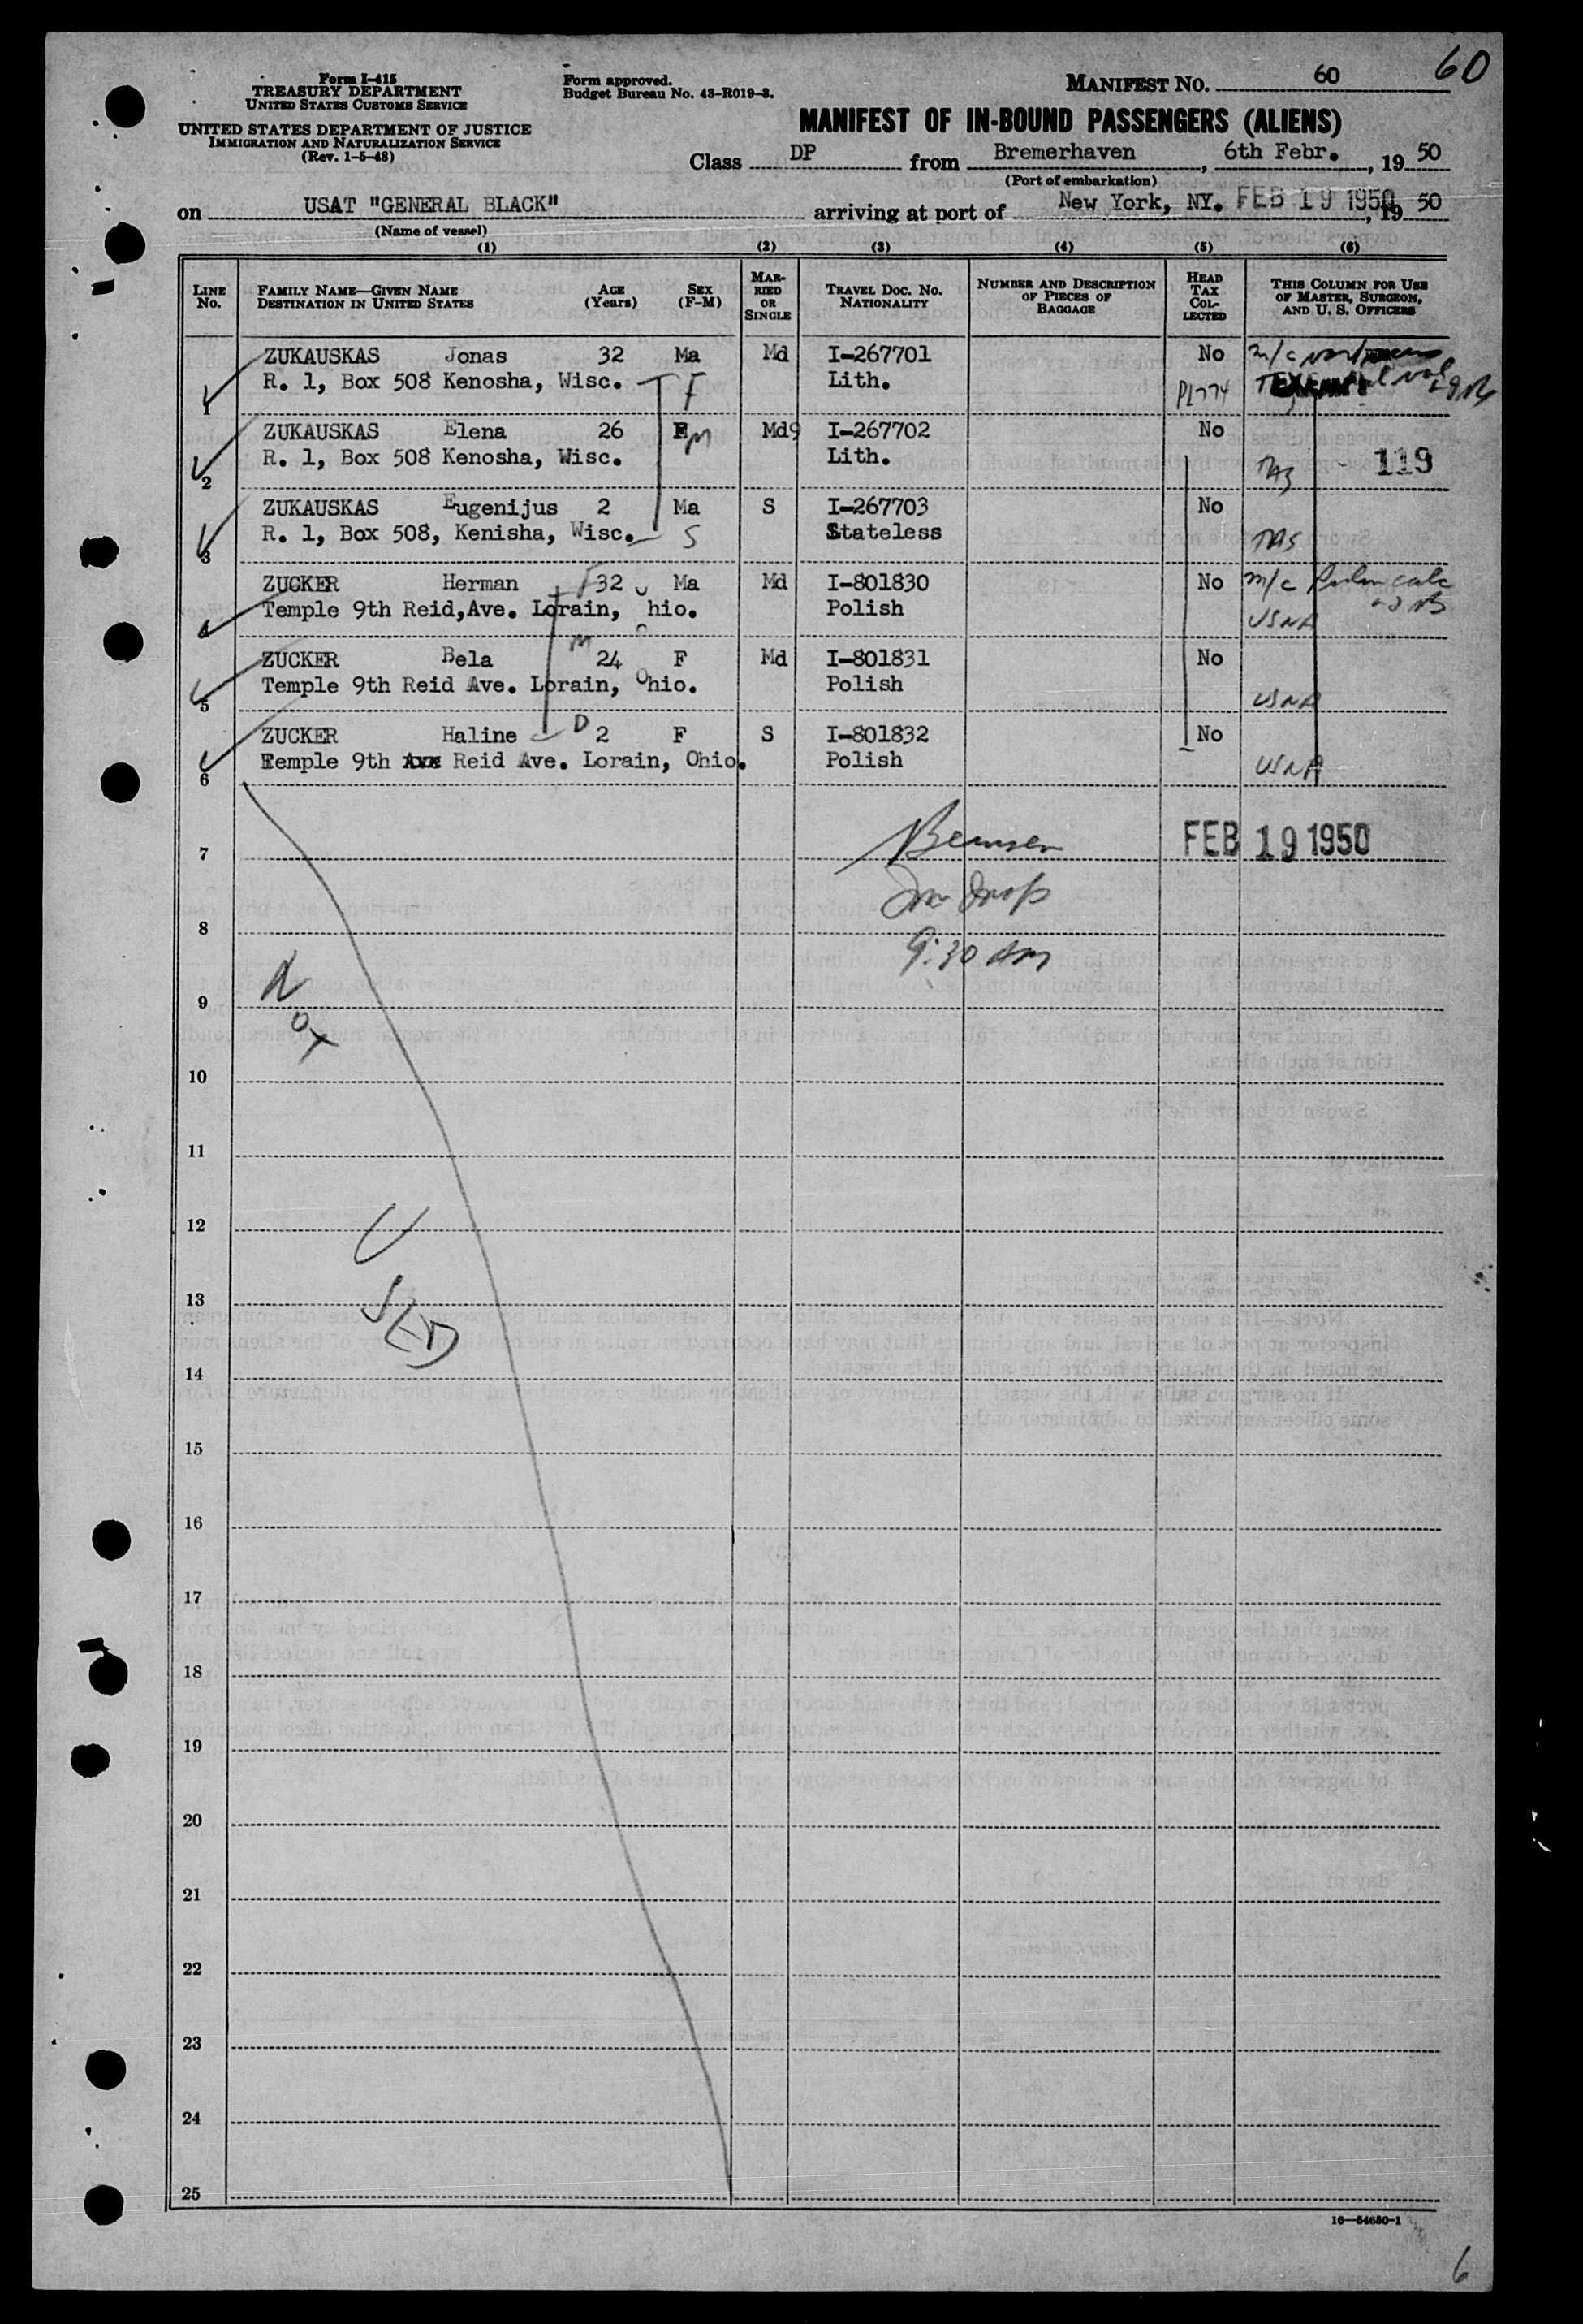 60
Form I-415
TREASURY DEPARTMENT
UNITED STATES CUSTOMS SERVICE
UNITED STATES DEPARTMENT OF JUSTICE
IMMIGRATION AND NATURALIZATION SERVICE
(Rev. 1-5-48)
Form approved.
Budget Bureau No. 43-R019-3.
MANIFEST NO. 60
MANIFEST OF IN-BOUND PASSENGERS (ALIENS)
Class DP from Bremerhaven, 6th Febr., 19 50
(Port of embarkation)
on USAT "GENERAL BLACK" arriving at port of New York, NY. FEB 19 1950, 19 50
(Name of vessel)
(1) (2) (3) (4) (5) (6)
LINE No. FAMILY NAME—GIVEN NAME DESTINATION IN UNITED STATES AGE (Years) SEX (F-M) MARRIED OR SINGLE TRAVEL DOC. NO. NATIONALITY NUMBER AND DESCRIPTION OF PIECES OF BAGGAGE HEAD TAX COLLECTED THIS COLUMN FOR USE OF MASTER, SURGEON, AND U. S. OFFICERS
ZUKAUSKAS Jonas 32 Ma Md I-267701 No m/c
1 R. 1, Box 508 Kenosha, Wisc. F Lith. PL774
ZUKAUSKAS Elena 26 F M Md I-267702 No
2 R. 1, Box 508 Kenosha, Wisc. Lith. 119
ZUKAUSKAS Eugenijus 2 Ma S I-267703 No
3 R. 1, Box 508, Kenisha, Wisc. S Stateless TAS
ZUCKER Herman F 32 Ma Md I-801830 No m/c
4 Temple 9th Reid,Ave. Lorain, Ohio. Polish USNA
ZUCKER Bela M 24 F Md I-801831 No
5 Temple 9th Reid Ave. Lorain, Ohio. Polish USNA
ZUCKER Haline D 2 F S I-801832 No
6 Temple 9th Ave Reid Ave. Lorain, Ohio. Polish USNA
FEB 19 1950
7
8
9:30 AM
9
NOT
10
11
12
USED
13
14
15
16
17
18
19
20
21
22
23
24
25
16—54650-1
6